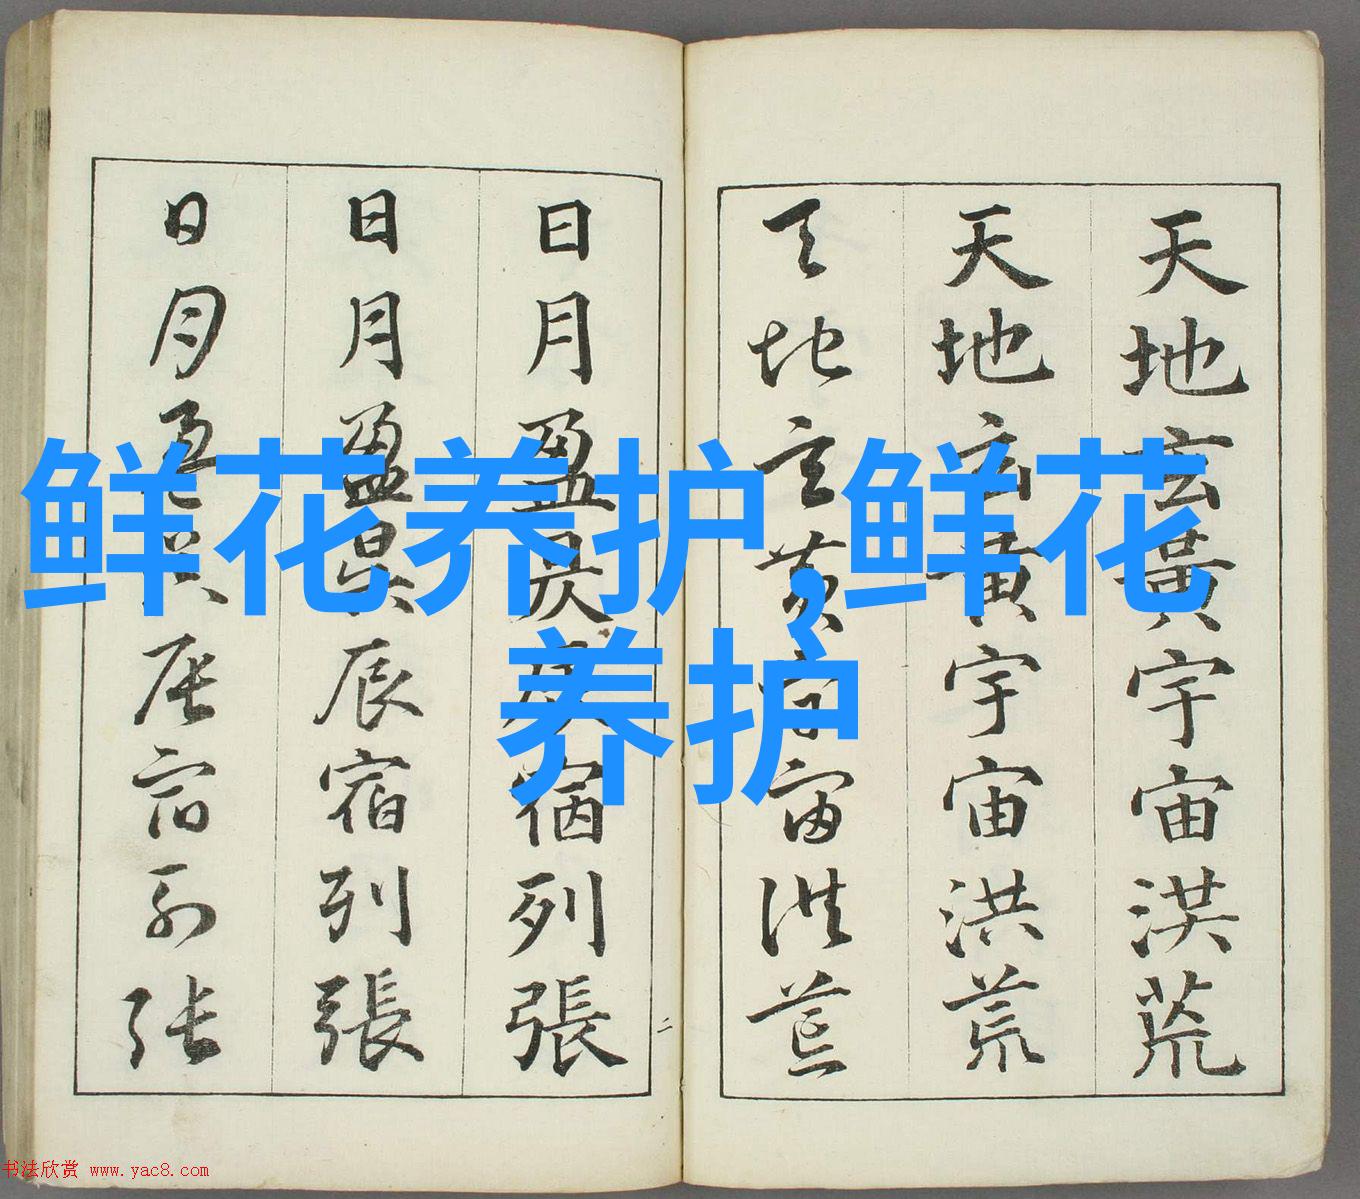 鲜花养护,鲜花
养护
天地玄黃宇宙洪荒
天地玄黃宇宙洪荒
天地玄黃宇宙洪荒
日月盈昃辰宿列張
日月盈昃辰宿列張
日月盈昃辰宿列張
二
书法欣赏 www.yac8.com